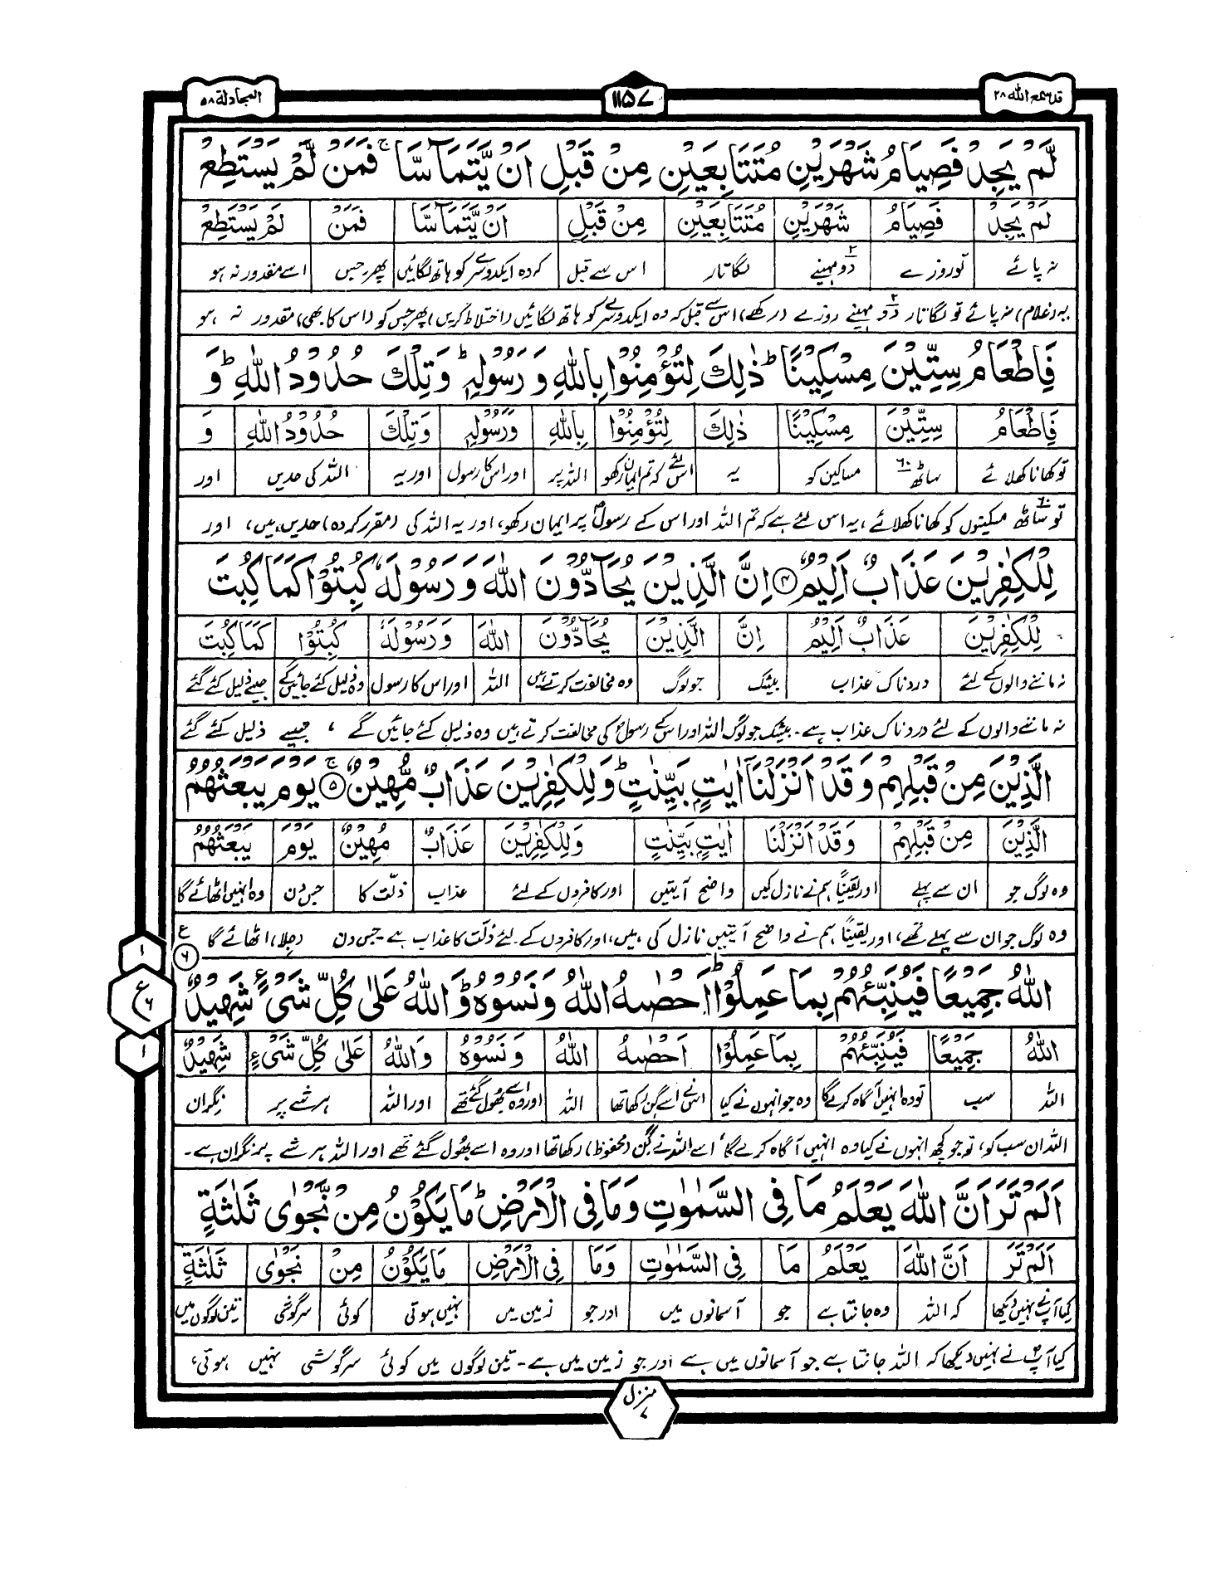 قد سمع الله ۲۸
۱۱۵۷
المجادلة ۵۸
لَّمْ يَجِدْ فَصِيَامُ شَهْرَيْنِ مُتَتَابِعَيْنِ مِنْ قَبْلِ اَنْ يَّتَمَآسَّا ۚ فَمَنْ لَّمْ يَسْتَطِعْ
لَمْ يَجِدْ فَصِيَامُ شَهْرَيْنِ مُتَتَابِعَيْنِ مِنْ قَبْلِ اَنْ يَّتَمَآسَّا فَمَنْ لَمْ يَسْتَطِعْ
نہ پائے تو روزے دو ۲ مہینے لگاتار اس سے قبل کہ وہ ایکدوسرے کو ہاتھ لگائیں پھر جس اسے مقدور نہ ہو
یہ (غلام) نہ پائے تو لگاتار دو ۲ مہینے روزے (رکھے) اس سے قبل کہ وہ ایکدوسرے کو ہاتھ لگائیں (اختلاط کریں) پھر جس کو (اس کا بھی) مقدور نہ ہو
فَاِطْعَامُ سِتِّيْنَ مِسْكِيْنًا ۭ ذٰلِكَ لِتُؤْمِنُوْا بِاللّٰهِ وَرَسُوْلِهٖ ۭ وَتِلْكَ حُدُوْدُ اللّٰهِ ۭ وَ
فَاِطْعَامُ سِتِّيْنَ مِسْكِيْنًا ذٰلِكَ لِتُؤْمِنُوْا بِاللّٰهِ وَرَسُوْلِهٖ وَتِلْكَ حُدُوْدُ اللّٰهِ وَ
تو کھانا کھلائے ساٹھ ۶۰ مساکین کو یہ اس لئے کہ تم ایمان رکھو اللہ پر اور اس کا رسول اور یہ اللہ کی حدیں اور
تو ساٹھ ۶۰ مسکینوں کو کھانا کھلائے، یہ اس لئے ہے کہ تم اللہ اور اس کے رسولؐ پر ایمان رکھو، اور یہ اللہ کی (مقرر کردہ) حدیں ہیں، اور
لِلْكٰفِرِيْنَ عَذَابٌ اَلِيْمٌ ۴ اِنَّ الَّذِيْنَ يُحَآدُّوْنَ اللّٰهَ وَرَسُوْلَهٗ كُبِتُوْا كَمَا كُبِتَ
لِلْكٰفِرِيْنَ عَذَابٌ اَلِيْمٌ اِنَّ الَّذِيْنَ يُحَآدُّوْنَ اللّٰهَ وَرَسُوْلَهٗ كُبِتُوْا كَمَا كُبِتَ
نہ ماننے والوں کے لئے دردناک عذاب بیشک جو لوگ وہ مخالفت کرتے ہیں اللہ اور اس کا رسول وہ ذلیل کئے جائیں گے جیسے ذلیل کئے گئے
نہ ماننے والوں کے لئے دردناک عذاب ہے۔ بیشک جو لوگ اللہ اور اس کے رسولؐ کی مخالفت کرتے ہیں وہ ذلیل کئے جائیں گے، جیسے ذلیل کئے گئے
الَّذِيْنَ مِنْ قَبْلِهِمْ وَقَدْ اَنْزَلْنَآ اٰيٰتٍۢ بَيِّنٰتٍ ۭ وَلِلْكٰفِرِيْنَ عَذَابٌ مُّهِيْنٌ ۚ ۵ يَوْمَ يَبْعَثُهُمُ
الَّذِيْنَ مِنْ قَبْلِهِمْ وَقَدْ اَنْزَلْنَا اٰيٰتٍۢ بَيِّنٰتٍ وَلِلْكٰفِرِيْنَ عَذَابٌ مُهِيْنٌ يَوْمَ يَبْعَثُهُمُ
وہ لوگ جو ان سے پہلے اور یقیناً ہم نے نازل کیں واضح آیتیں اور کافروں کے لئے عذاب ذلّت کا جس دن وہ انہیں اٹھائے گا
وہ لوگ جو ان سے پہلے تھے، اور یقیناً ہم نے واضح آیتیں نازل کی ہیں، اور کافروں کے لئے ذلّت کا عذاب ہے جس دن (جلا) اٹھائے گا
اللّٰهُ جَمِيْعًا فَيُنَبِّئُهُمْ بِمَا عَمِلُوْا ۭ اَحْصٰىهُ اللّٰهُ وَنَسُوْهُ ۭ وَاللّٰهُ عَلٰى كُلِّ شَيْءٍ شَهِيْدٌ ع ۶
۱
ع ۶
۱
اللّٰهُ جَمِيْعًا فَيُنَبِّئُهُمْ بِمَا عَمِلُوْا اَحْصٰىهُ اللّٰهُ وَنَسُوْهُ وَاللّٰهُ عَلٰى كُلِّ شَيْءٍ شَهِيْدٌ
اللہ سب تو وہ انہیں آگاہ کرے گا وہ جو انہوں نے کیا اس نے اسے گن رکھا تھا اللہ اور وہ اسے بھول گئے تھے اور اللہ ہر شے پر نگران
اللہ ان سب کو، تو جو کچھ انہوں نے کیا وہ انہیں آگاہ کرے گا، اسے اللہ نے گن (محفوظ) رکھا تھا اور وہ اسے بھول گئے تھے اور اللہ ہر شے پر نگران ہے۔
اَلَمْ تَرَ اَنَّ اللّٰهَ يَعْلَمُ مَا فِي السَّمٰوٰتِ وَمَا فِي الْاَرْضِ ۭ مَا يَكُوْنُ مِنْ نَّجْوٰى ثَلٰثَةٍ
اَلَمْ تَرَ اَنَّ اللّٰهَ يَعْلَمُ مَا فِي السَّمٰوٰتِ وَمَا فِي الْاَرْضِ مَا يَكُوْنُ مِنْ نَجْوٰى ثَلٰثَةٍ
کیا آپ نے نہیں دیکھا کہ اللہ وہ جانتا ہے جو آسمانوں میں اور جو زمین میں نہیں ہوتی کوئی سرگوشی تین لوگوں میں
کیا آپؐ نے نہیں دیکھا کہ اللہ جانتا ہے جو آسمانوں میں ہے اور جو زمین میں ہے۔ تین لوگوں میں کوئی سرگوشی نہیں ہوتی،
منزل ۷